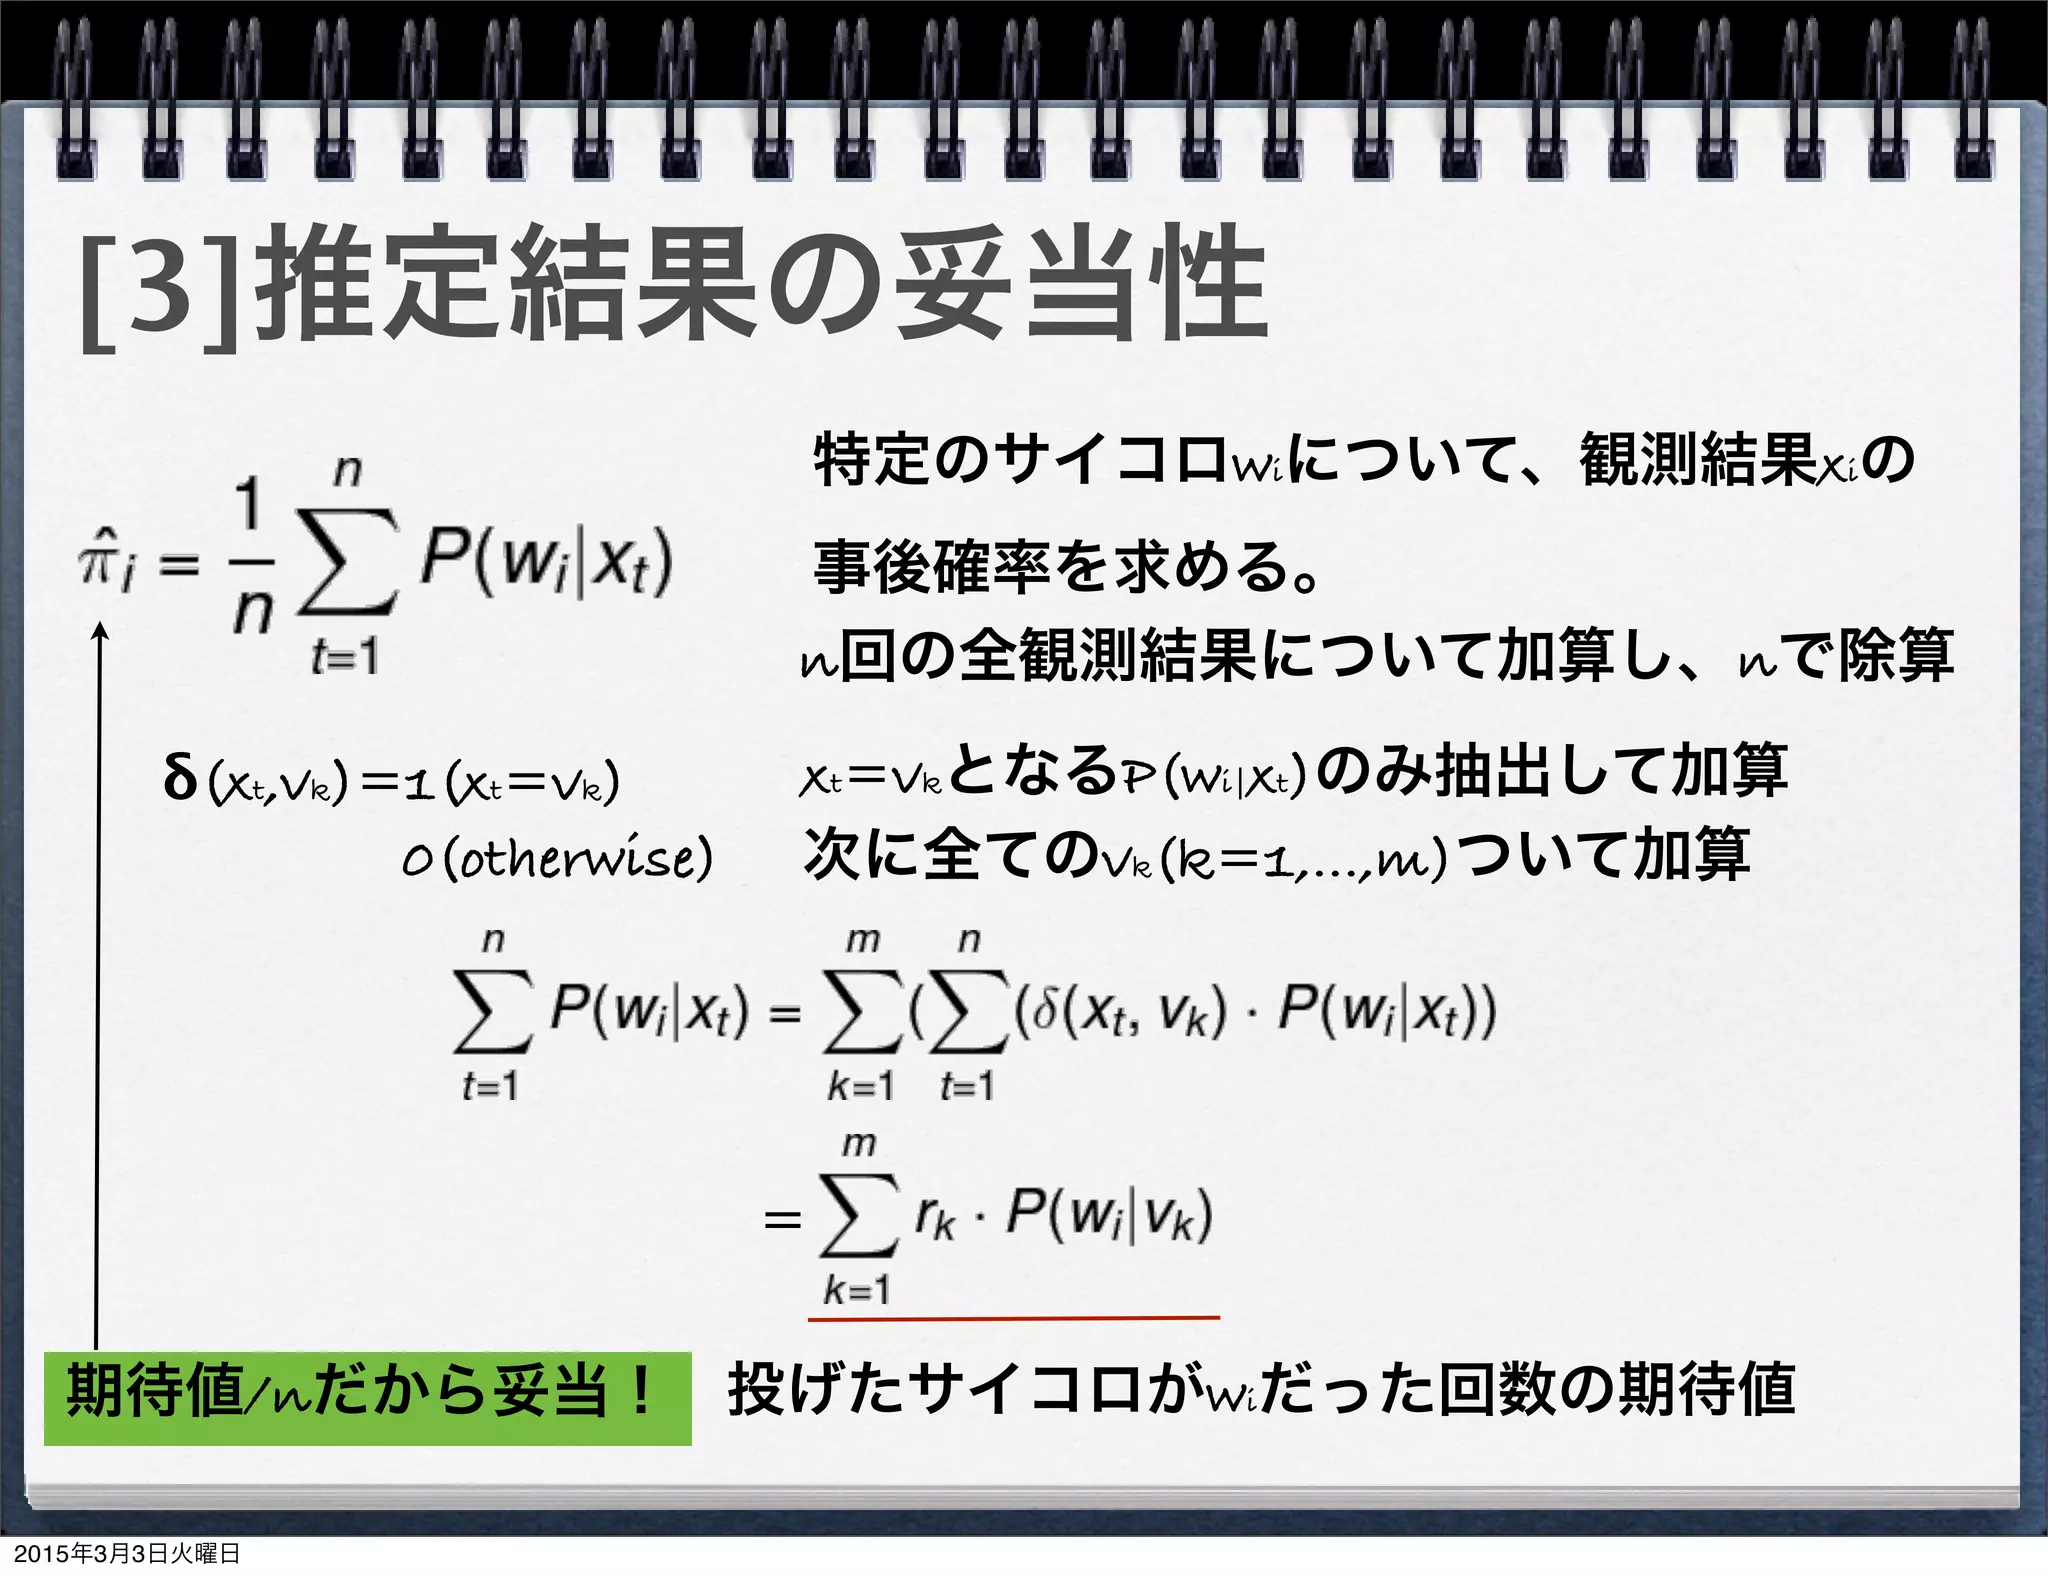 [3]推定結果の妥当性
π̂i = 1/n ∑_{t=1}^{n} P(wi|xt)
特定のサイコロwiについて、観測結果xiの
事後確率を求める。
n回の全観測結果について加算し、nで除算
δ(xt,vk)=1(xt=vk)
0(otherwise)
xt=vkとなるP(wi|xt)のみ抽出して加算
次に全てのvk(k=1,...,m)ついて加算
∑_{t=1}^{n} P(wi|xt) = ∑_{k=1}^{m} (∑_{t=1}^{n} (δ(xt, vk) · P(wi|xt))
= ∑_{k=1}^{m} rk · P(wi|vk)
期待値/nだから妥当！
投げたサイコロがwiだった回数の期待値
2015年3月3日火曜日